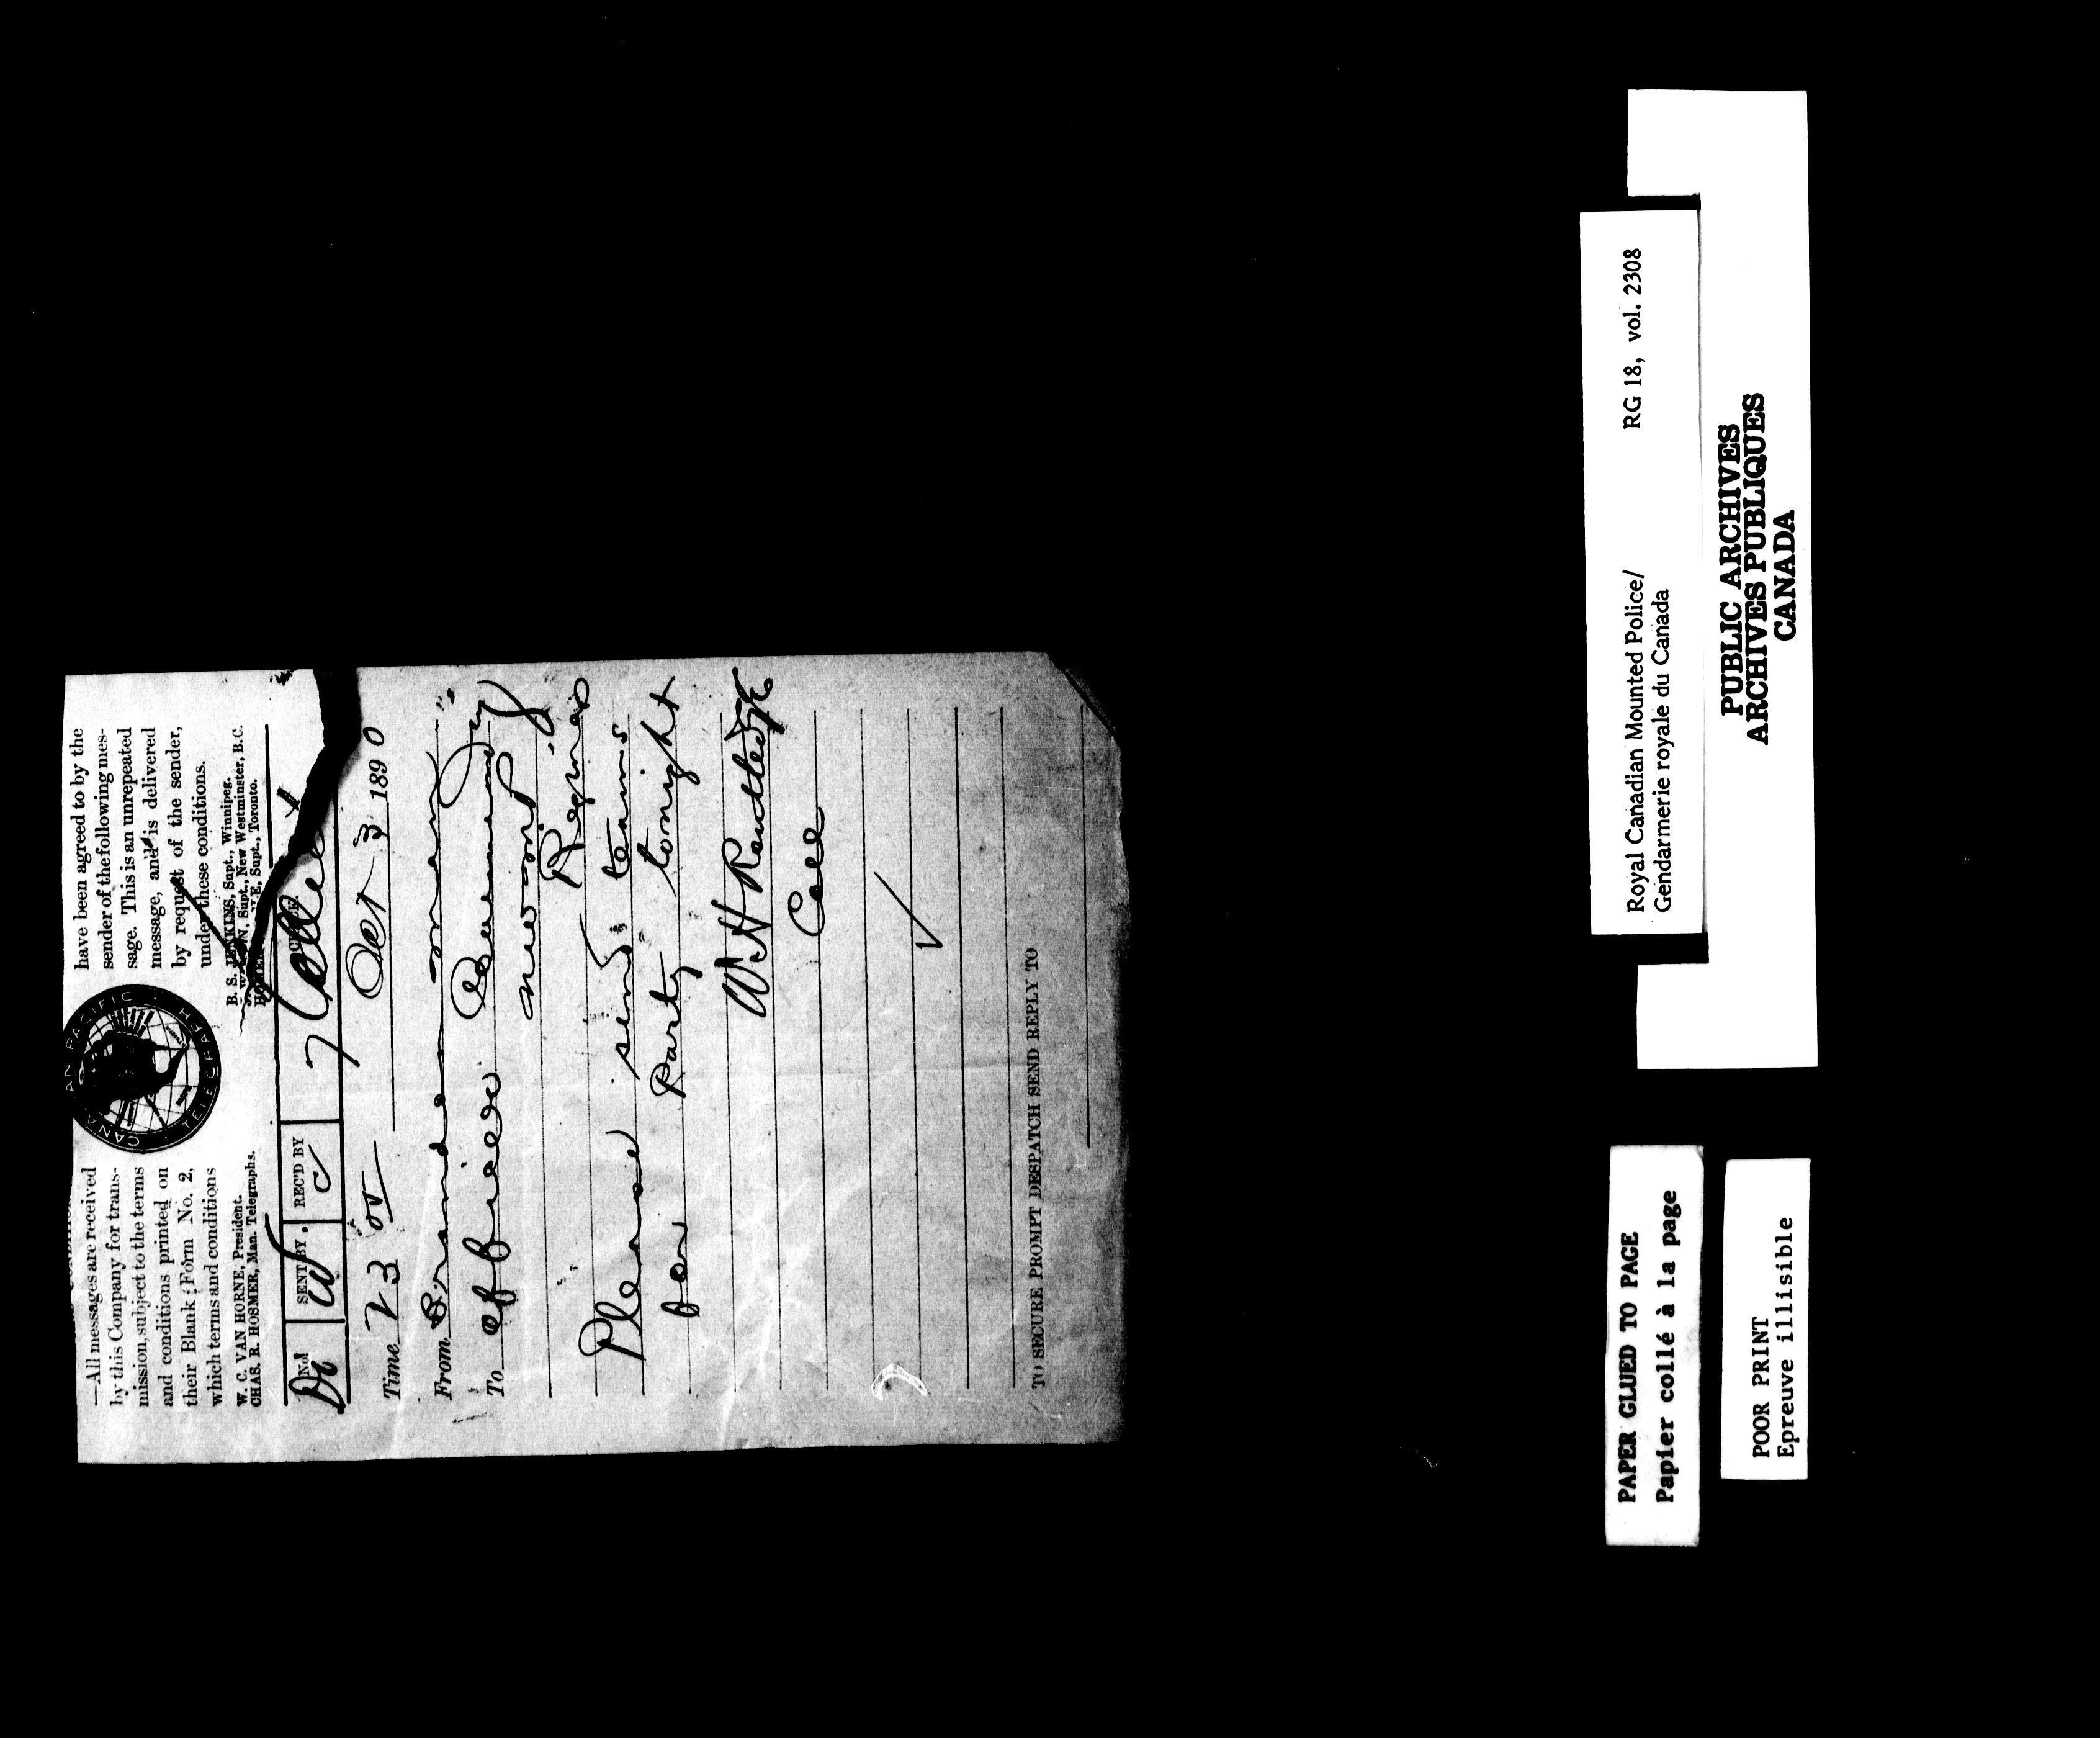 —All messages are received
by this Company for trans-
mission, subject to the terms
and conditions printed on
their Blank Form No. 2,
which terms and conditions
have been agreed to by the
sender of the following mes-
sage. This is an unrepeated
message, and is delivered
by request of the sender,
under these conditions.
CANADIAN PACIFIC
TELEGRAPH
W. C. VAN HORNE, President.
CHAS. R. HOSMER, Man. Telegraphs.
B. S. JENKINS, Supt., Winnipeg.
Supt., New Westminster, B.C.
Supt., Toronto.
No. SENT BY REC'D BY
W C 7 Collect
Time 23 Oct 3 1890
From Brandon man
To officer Commanding
nwmp
Regina
Please send teams
for party tonight
WH Routledge
TO SECURE PROMPT DESPATCH SEND REPLY TO
Royal Canadian Mounted Police/ RG 18, vol. 2308
Gendarmerie royale du Canada
PUBLIC ARCHIVES
ARCHIVES PUBLIQUES
CANADA
PAPER GLUED TO PAGE
Papier collé à la page
POOR PRINT
Epreuve illisible